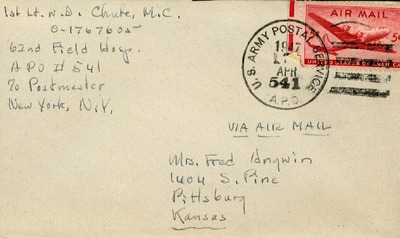 1st Lt. W.D. Chute, M.C.
O-1767605
62nd Field Hosp.
APO # 541
℅ Postmaster
New York, N.Y.
U.S. ARMY POSTAL SERVICE
1947
APR
541
A.P.O.
AIR MAIL
5¢
VIA AIR MAIL
Mrs. Fred Angwin
1404 S. Pine
Pittsburg
Kansas